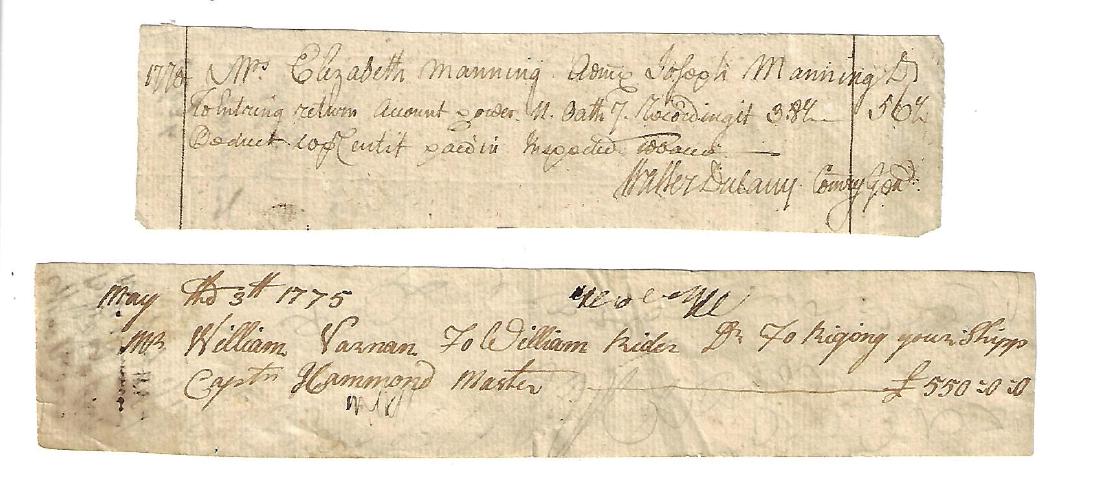 1770 Mrs Elizabeth Manning Admx Joseph Manning Dr
To Entring return account power & oath 7. Recording it 38½ 56½
Deduct if paid in Inspected Tobacco
Walter Dulany Comry Genl.
May the 3th 1775
Mr. William Varnan To William Rider Dr To Rigong your Shipp
Captn Hammond Master £ 550:0:0